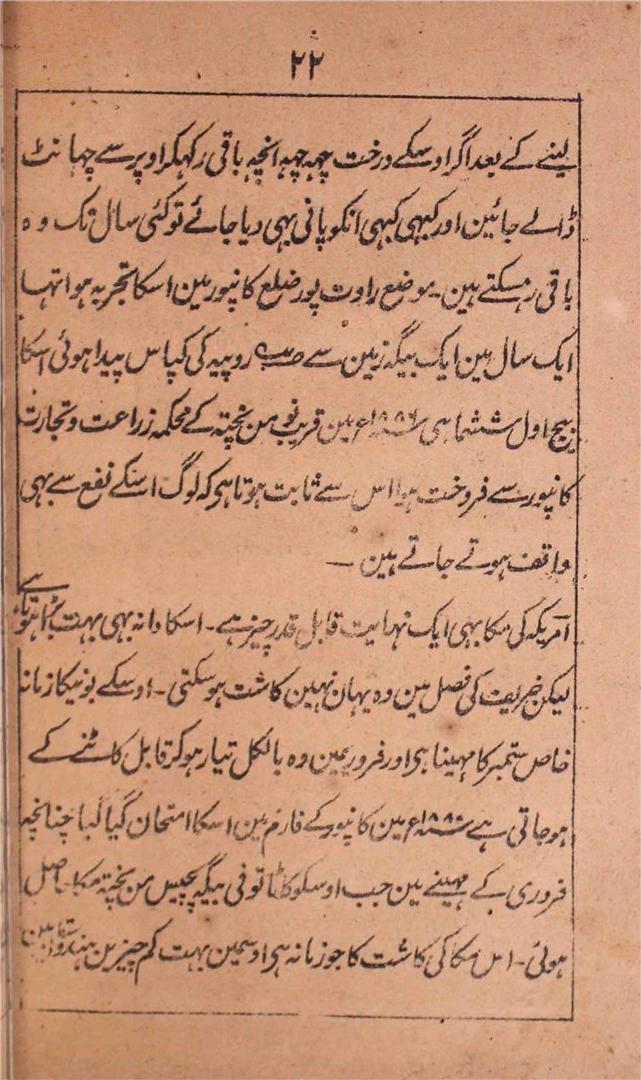 ۲۲
لینے کے بعد اگر اوسکے درخت چہہ چہہ انچہ باقی رکہکر اوپر سے چہانٹ
ڈالے جائین اور کبہی کبہی انکو پانی بہی دیا جائے تو کئی سال تک وہ
باقی رہسکتے ہین۔ موضع راوت پور ضلع کانپور مین اسکا تجربہ ہوا تہا
ایک سال مین ایک بیگہ زمین سے روپیہ کی کپاس پیدا ہوئی اسکا
بیج اول ششماہی مین قریب نو من پختہ کے محکمہ زراعت و تجارت
کانپور سے فروخت ہوا اس سے ثابت ہوتا ہی کہ لوگ اسکے نفع سے بہی
واقف ہوتے جاتے ہین ۔
آمریکہ کی مکا بہی ایک نہایت قابل قدر چیز ہے۔ اسکا دانہ بہی بہت بڑا ہوتا ہے
لیکن خریف کی فصل مین وہ یہان نہین کاشت ہو سکتی۔ اوسکے بونیکا زمانہ
خاص ستمبر کا مہینا ہی اور فروریمین وہ بالکل تیار ہو کر قابل کاٹنے کے
ہو جاتی ہے مین کانپور کے فارم مین اسکا امتحان کیا گیا چنانچہ
فروری کے مہینے مین جب اوسکو کاٹا تو فی بیگہ پچیس من پختہ مکا حاصل
ہوئی۔ اس مکا کی کاشت کا جو زمانہ ہی اوسمین بہت کم چیزین ہندوستانمین